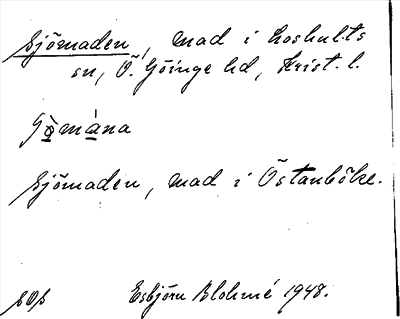 Sjömaden, mad i Loshults
sn, Ö. Göinge hd, Krist. l.
Sjömaden, mad i Östanböke.
Esbjörn Blohmé 1948.